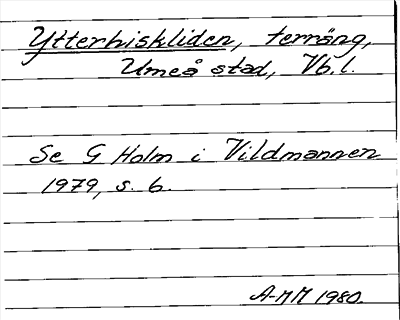 Ytterhiskliden, terräng,
Umeå stad, Vb. l.
Se G Holm i Vildmannen
1979, s. 6.
A-MM 1980.